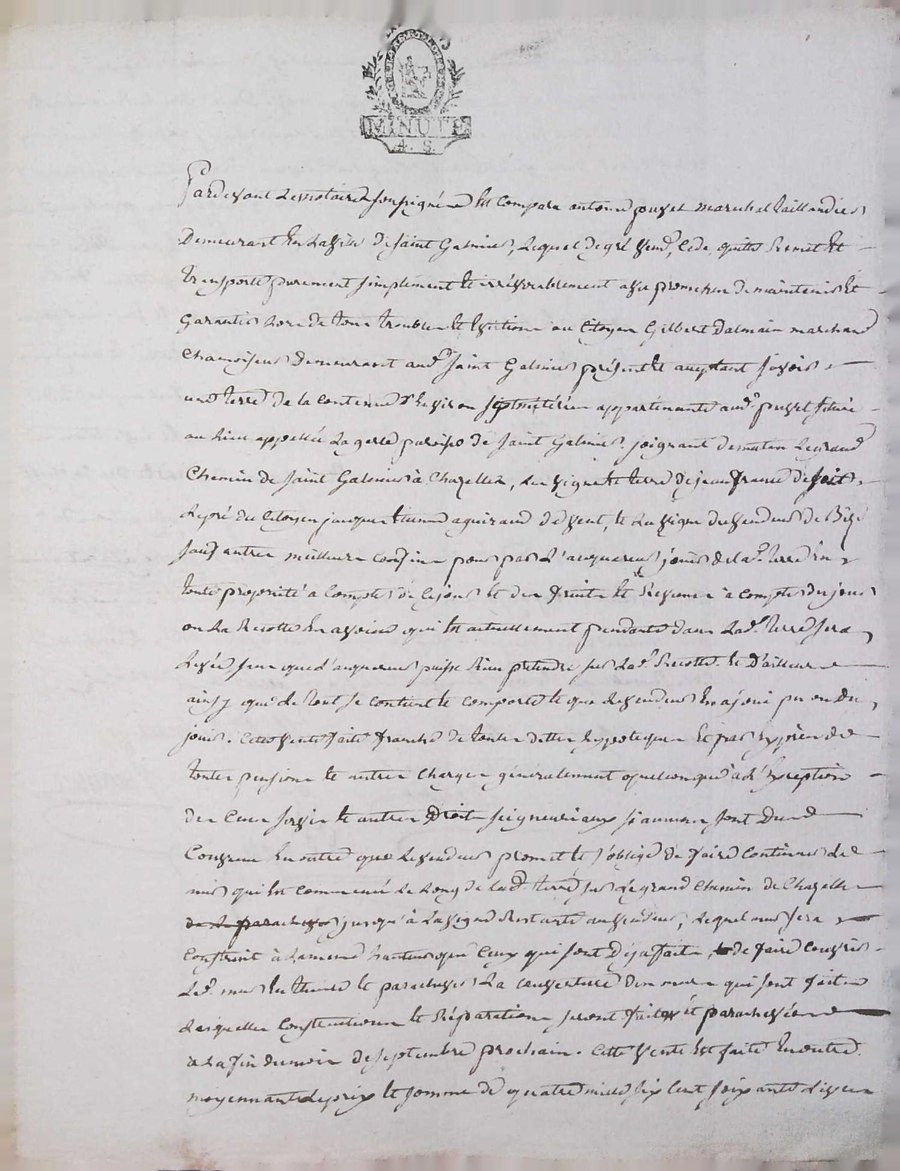 MINUTE
4. S.
Pardevant le notaire soussigné est comparu antoine puzet marechal taillandier
Demeurant en la ville de saint Galmier, lequel de gré vend, cede, quitte remet et
transporte purement simplement et irrévocablement avec promesse de maintenir et
garantir hors de tous troubles et evictions au Citoyen Gilbert Dalmain marchand
chamoiseur demeurant aud.t saint Galmier présent et acceptant savoir
une terre de la contenue d'environ appartenante aud.t puzet située
au lieu appellée la gare paroisse de saint Galmier, joignant de matin le grand
Chemin de saint Galmier à Chazelles, la vigne et terre de jean de soir
le pré du Citoyen jacques etienne aguiraud de vent, et la vigne du vendeur de Bize
sauf autres meilleurs confins pour par l'acquereur jouir de la d.e terre en
toute propriété à compter de ce jour et des fruits et revenus à compter du jour
ou la recolte en avoine qui est actuellement pendante dans lad.e terre sera
levée sans que l'acquereur puisse rien pretendre sur lad.e recolte et d'ailleurs
ainsy que le tout se contient et comporte et que le vendeur en a joui pu ou du
jouir. Cette vente faite franche de toutes dettes hypoteques et par exprès de
toutes pensions et autres charges généralement quelconques à l'exception
des cens servis et autres Droits seigneuriaux si aucuns sont dus
Convenu en outre que le vendeur promet et s'oblige de faire continuer le
mur qui est commencé le long de lad.e terre sur le grand chemin de Chazelles
jusqu'à la vigne restante au vendeur, lequel mur sera
construit à la meme hauteur que ceux qui sont deja faits, de faire couvrir
led.t mur en thuiles et parachever la couverture des murs qui sont faits
lesquelles constructions et réparations seront faites et parachevées
à la fin du mois de septembre prochain. Cette vente est faite en outre
moyennant le prix et somme de quatre mille six cent soixante